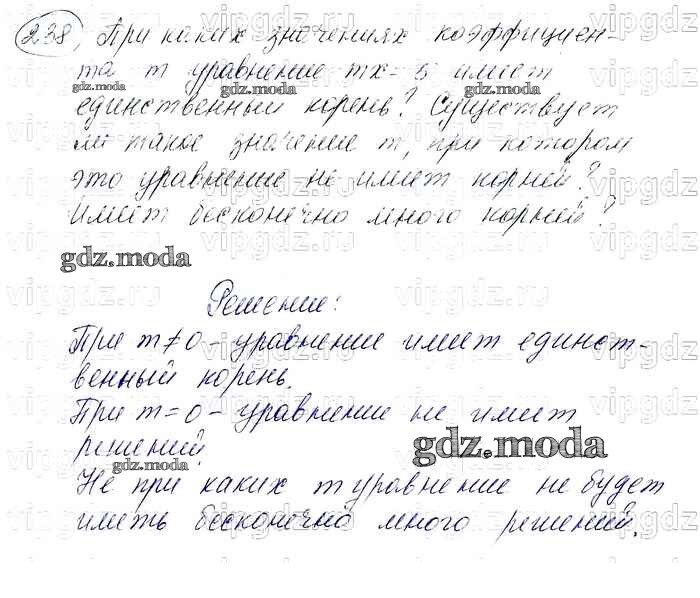 238. При каких значениях коэффициен-
та m уравнение mx = 5 имеет
единственный корень? Существует
ли такое значение m, при котором
это уравнение не имеет корней?
Имеет бесконечно много корней?
gdz.moda
Решение:
При m ≠ 0 - уравнение имеет единст-
венный корень.
При m = 0 - уравнение не имеет
решений.
gdz.moda
Не при каких m уравнение не будет
иметь бесконечно много решений.